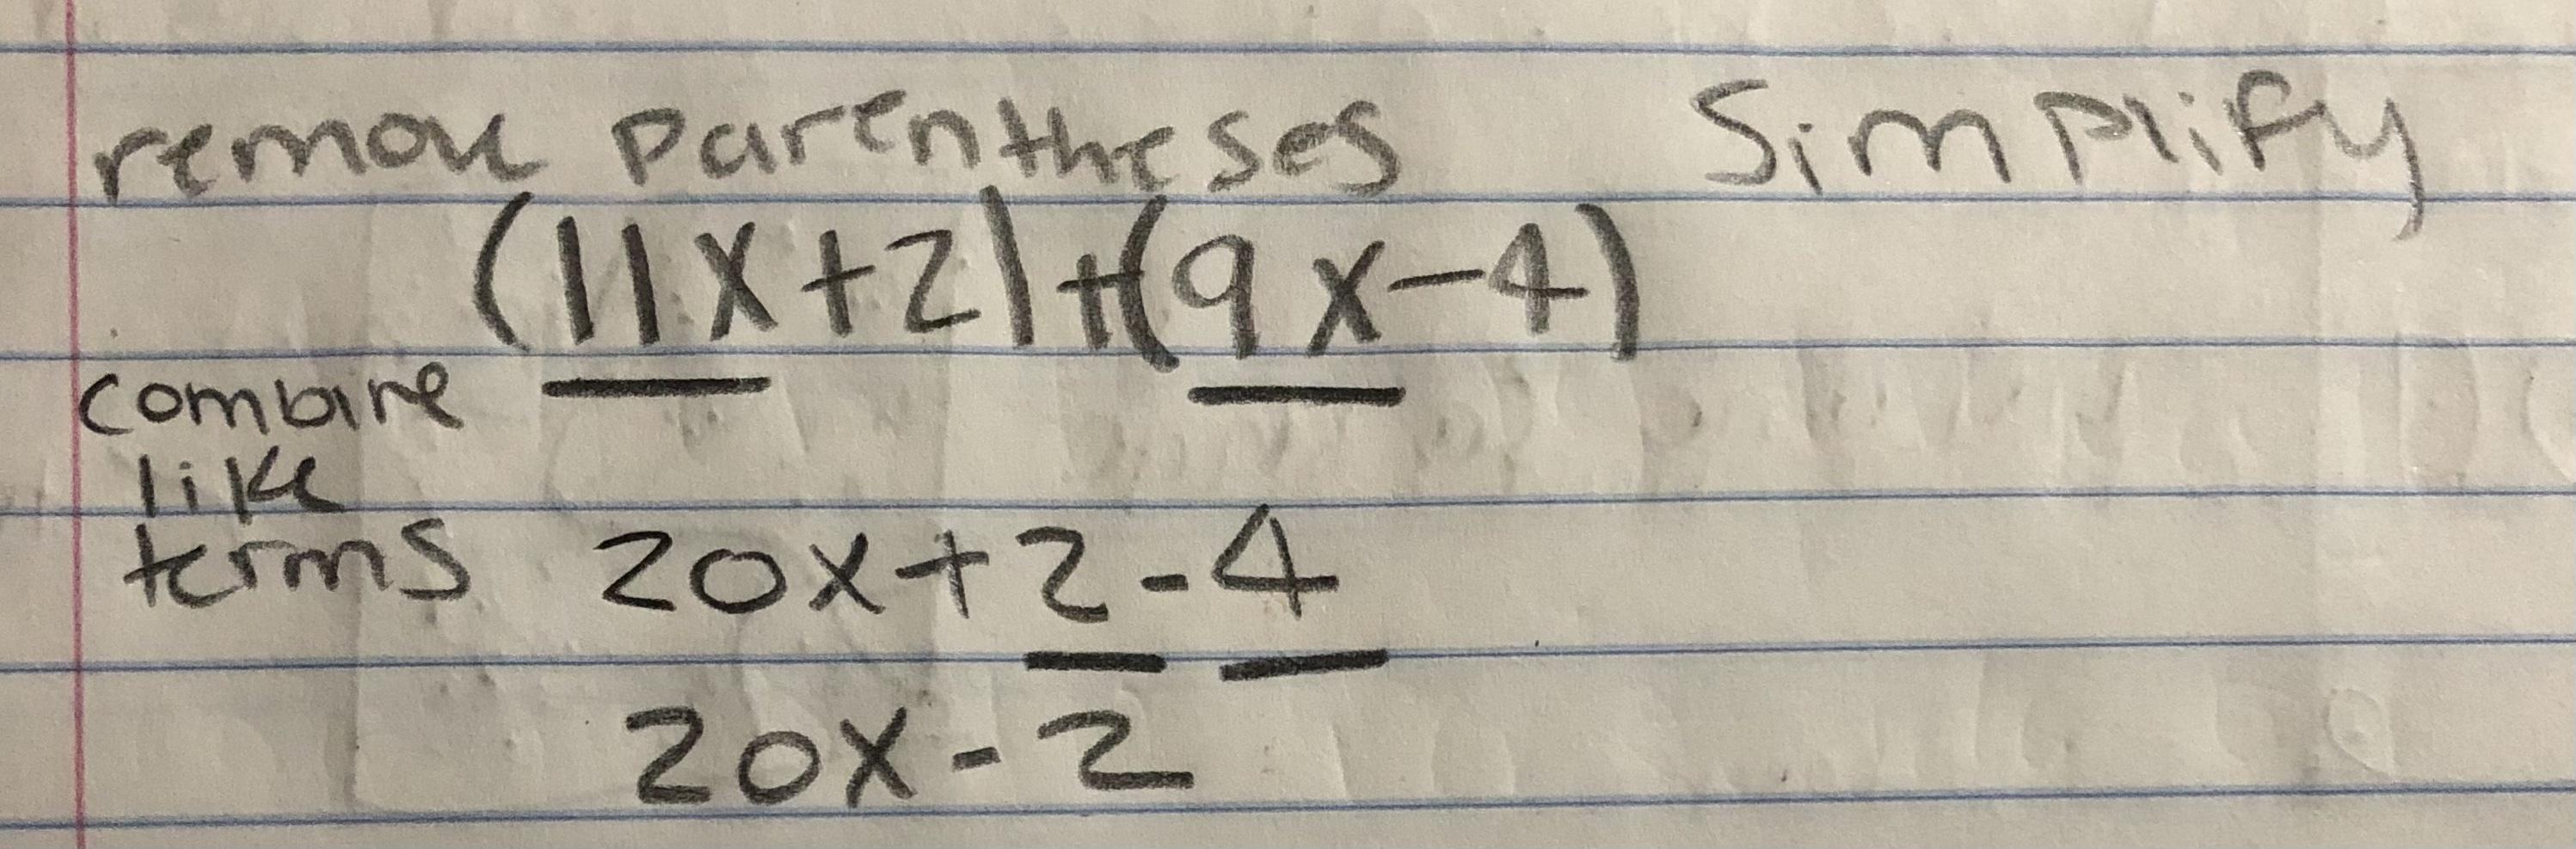 remove parentheses Simplify
(11x+2)+(9x-4)
combine
like
terms 20x+2-4
20x-2